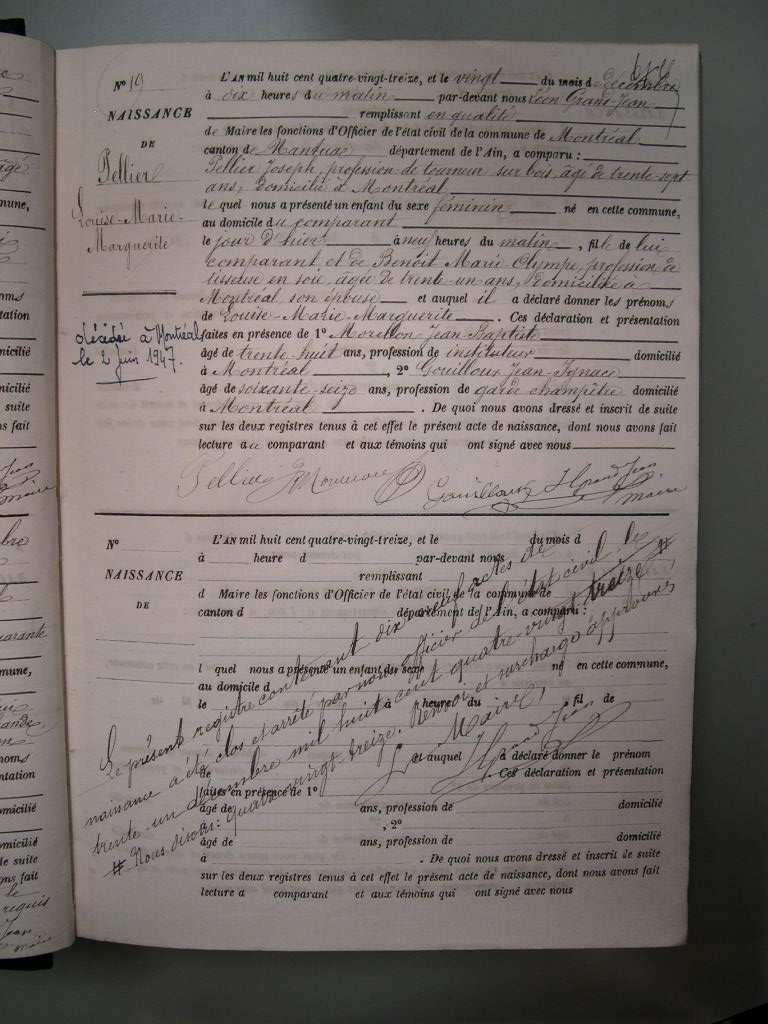 N° 19
NAISSANCE
DE
Pellier
Louise-Marie-
Marguerite
décédée à Montréal
le 2 juin 1947.
L'AN mil huit cent quatre-vingt-treize, et le vingt du mois d décembre
à dix heures du matin par-devant nous Léon Grand-Jean
remplissant en qualité
de Maire les fonctions d'Officier de l'état civil de la commune de Montréal
canton de Nantua département de l'Ain, a comparu :
Pellier Joseph, profession de tourneur sur bois, âgé de trente-sept
ans, domicilié à Montréal
lequel nous a présenté un enfant du sexe féminin né en cette commune,
au domicile du comparant
le jour d'hier à neuf heures du matin, fille de lui
comparant et de Benoît Marie Olympe, profession de
tisseuse en soie, âgée de trente un ans, domiciliée à
Montréal, son épouse et auquel il a déclaré donner les prénoms
de Louise-Marie-Marguerite. Ces déclaration et présentation
faites en présence de 1° Jean-Baptiste
âgé de trente huit ans, profession de instituteur domicilié
à Montréal, 2° Gouilloux Jean-Ignace
âgé de soixante-seize ans, profession de garde champêtre domicilié
à Montréal. De quoi nous avons dressé et inscrit de suite
sur les deux registres tenus à cet effet le présent acte de naissance, dont nous avons fait
lecture au comparant et aux témoins qui ont signé avec nous
Pellier Gouilloux Grand Jean
maire
N°
NAISSANCE
DE
L'AN mil huit cent quatre-vingt-treize, et le du mois d
à heure d par-devant nous
remplissant
d Maire les fonctions d'Officier de l'état civil de la commune de
canton d département de l'Ain, a comparu :
l quel nous a présenté un enfant du sexe né en cette commune,
au domicile d
le à heures du fil de
et auquel a déclaré donner le prénom
de . Ces déclaration et présentation
faites en présence de 1°
âgé de ans, profession de domicilié
à , 2°
âgé de ans, profession de domicilié
à . De quoi nous avons dressé et inscrit de suite
sur les deux registres tenus à cet effet le présent acte de naissance, dont nous avons fait
lecture a comparant et aux témoins qui ont signé avec nous
Le présent registre contenant dix neuf actes de
naissance a été clos et arrêté par nous officier de l'état civil, le
trente-un décembre mil huit cent quatre vingt treize #
# Nous disons: quatre vingt treize. Renvoi et surcharge approuvés
Le Maire,
Grand Jean